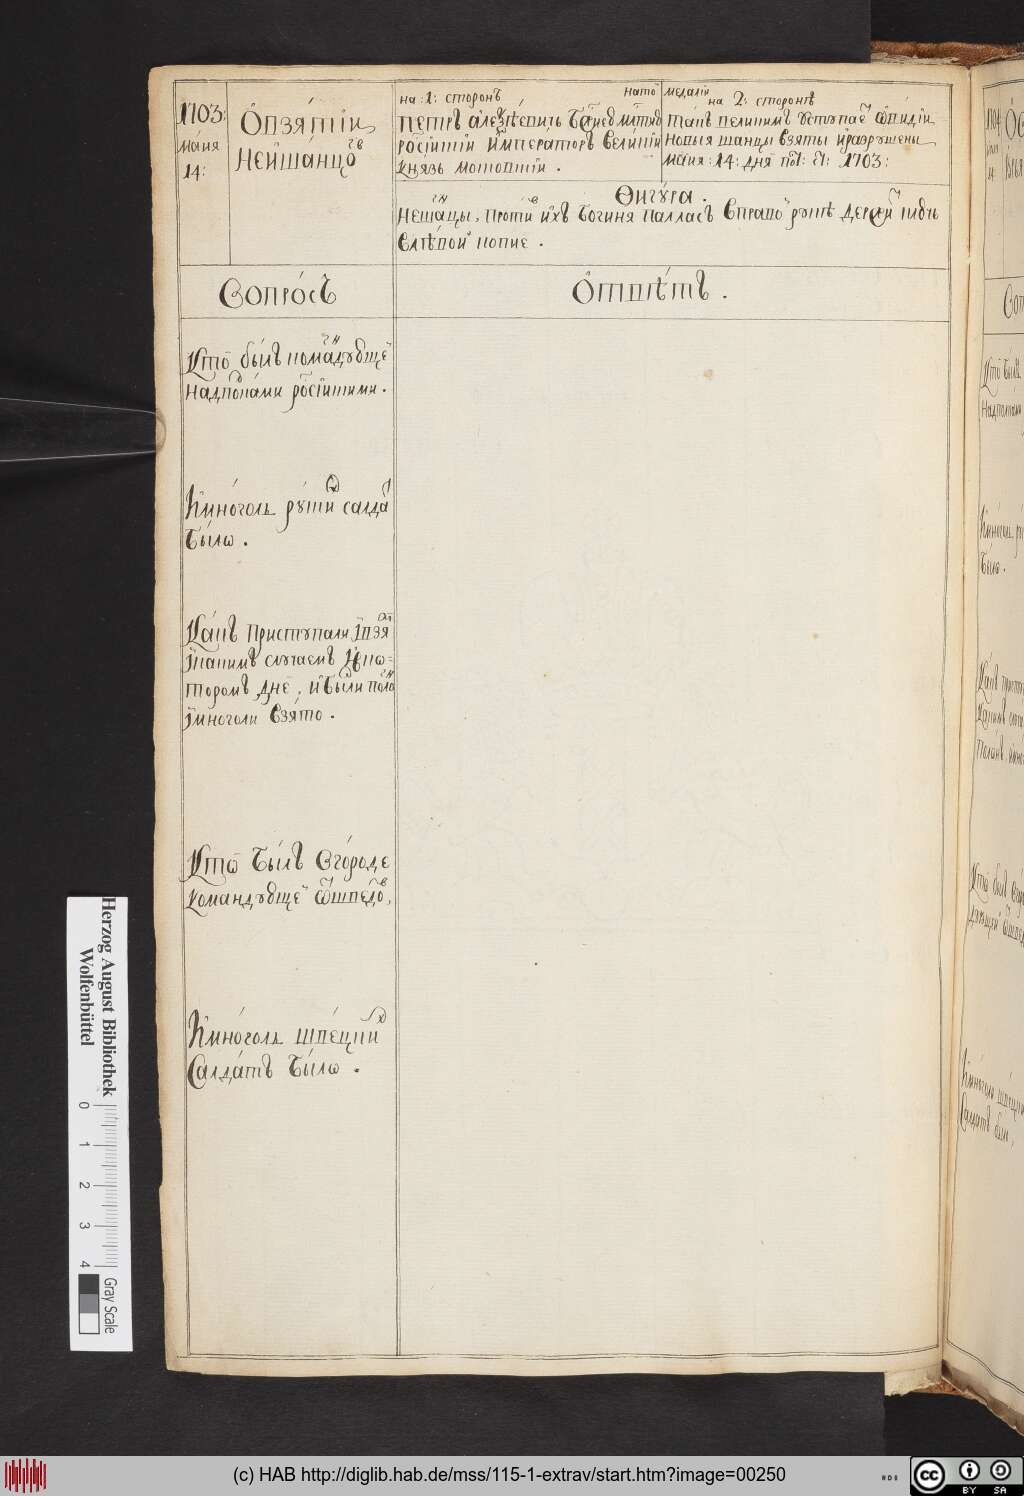 1703:
Маия
14:
О взятіи
Нейшанцовъ
на: 1: сторонѣ
на той медалїи
на 2: сторонѣ
Петръ Алеѯѣевичь Божиею млстию
росїискїи імператоръ великїи
князь московскїи .
такъ великимъ уступаетъ Ѿвидїи
новыя шанцы взяты и разрушены
Маия: 14: дня 1703:
Ѳигура .
Нешанцы, противъ ихъ богиня палласъ в правой рукѣ держит
в лѣвой копие .
Вопросъ
Ѿвѣтъ .
Кто былъ командующей
над полками росїискими .
И много ль рускихъ салдатъ
было .
Какъ приступали, і взят
і какимъ случаемъ и в ко=
торомъ дне, и были полон
і много ли взято .
Кто былъ в городе
командующей Ѿ шведовъ,
И много ль швецкихъ
салдатъ было .
Herzog August Bibliothek
Wolfenbüttel
0 1 2 3 4
Gray Scale
(c) HAB http://diglib.hab.de/mss/115-1-extrav/start.htm?image=00250
HAB
cc
BY SA